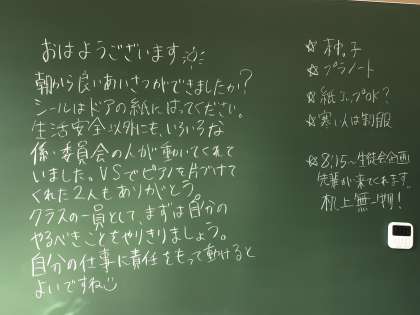 おはようございます
朝から良いあいさつができましたか?
シールはドアの紙にはってください。
生活安全以外にも、いろいろな
係・委員会の人が動いてくれて
いました。VSでピアノを片づけて
くれた2人もありがとう。
クラスの一員として、まずは自分の
やるべきことをやりきりましょう。
自分の仕事に責任をもって動けると
よいですね
☆ 木し。子
☆ プラノート
☆ 紙コップOK?
☆ 寒い人は制服
☆ 8:15~生徒会企画
先輩が来てくれます。
机上無一物!